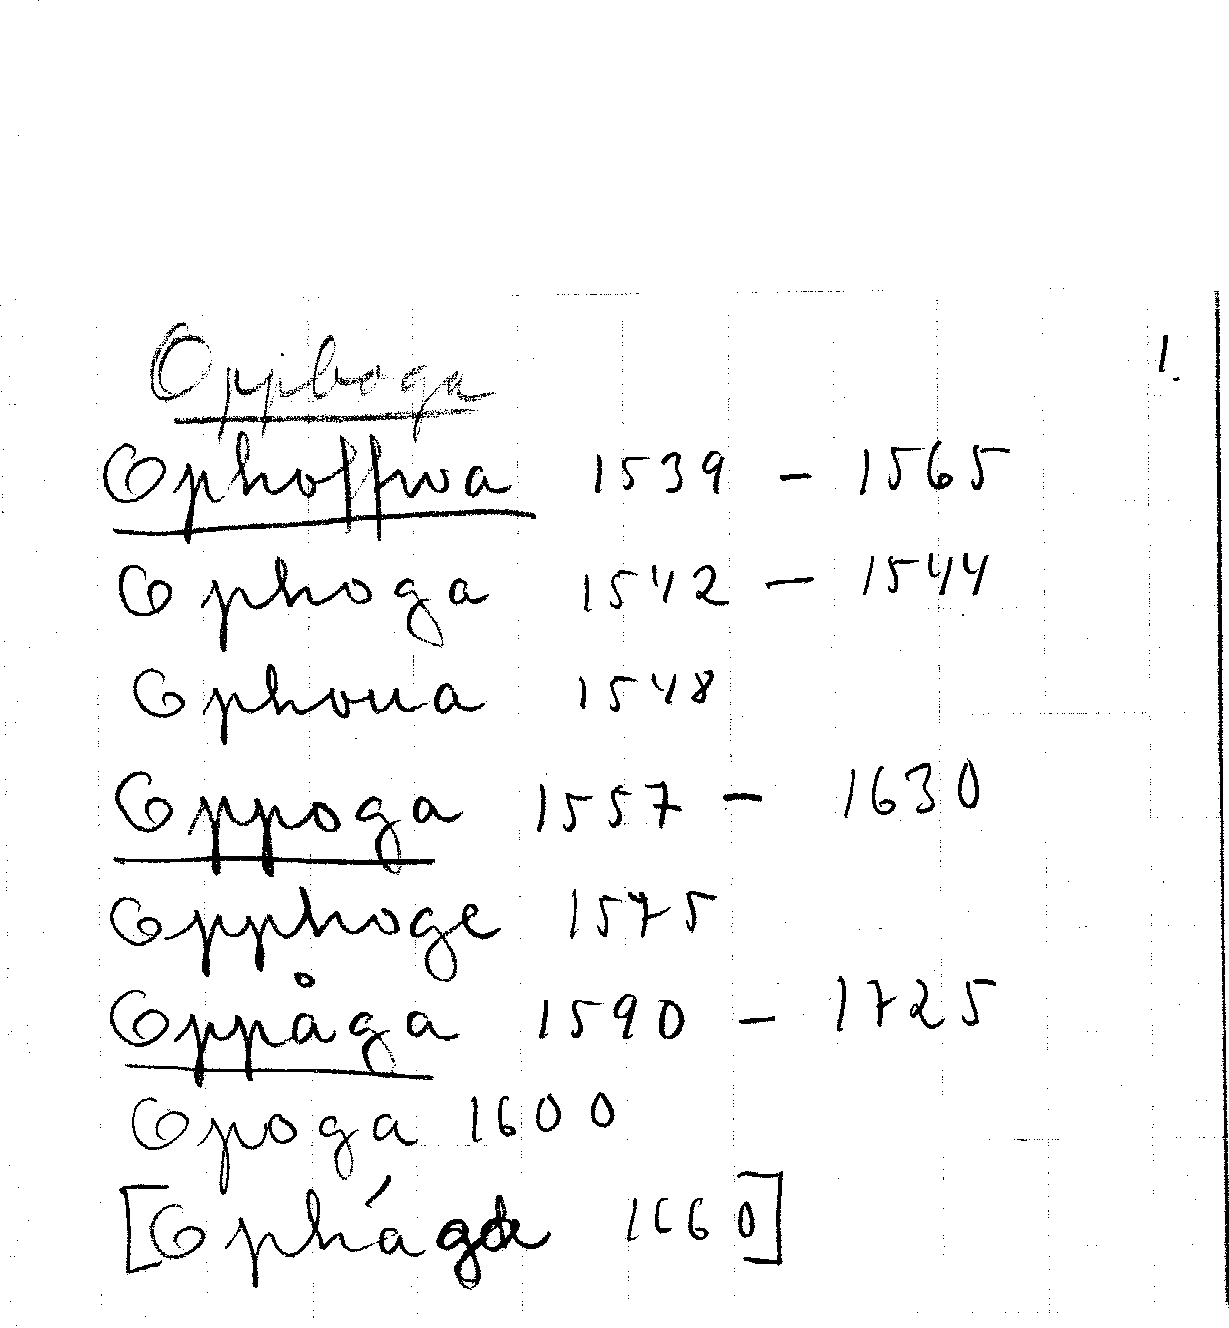 Oppboga 1.
Ophoffwa 1539 - 1565
Ophoga 1542 - 1544
Ophoua 1548
Oppoga 1557 - 1630
Opphoge 1575
Oppåga 1590 - 1725
Opoga 1600
[Ophága 1660]